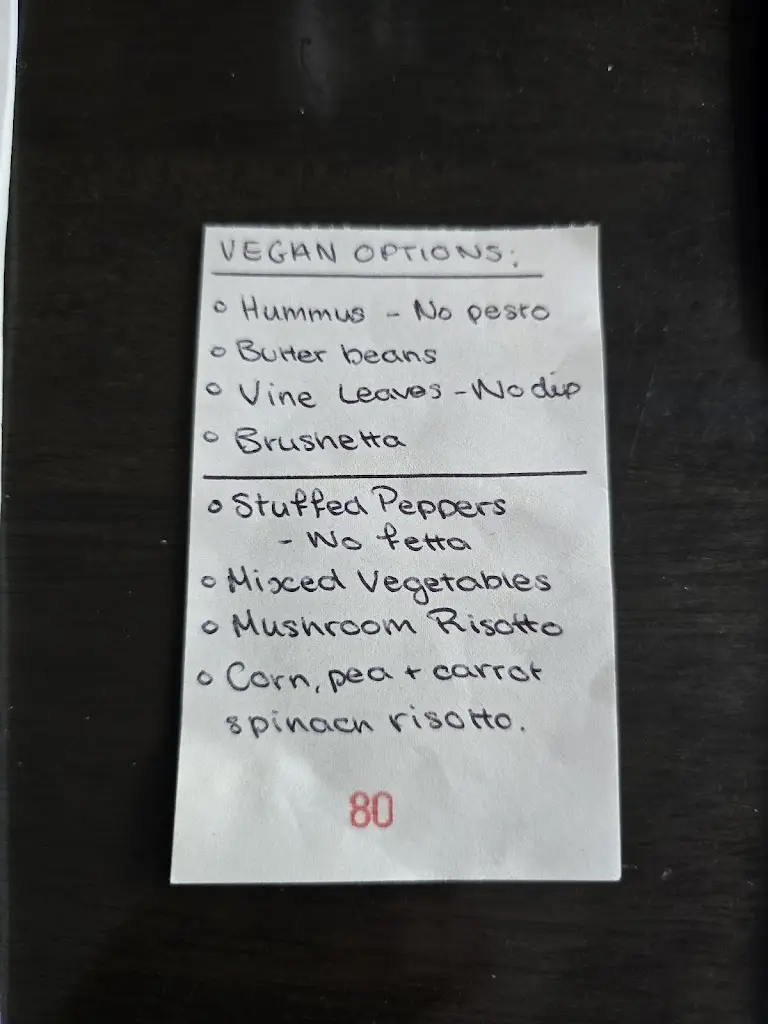 VEGAN OPTIONS:
○ Hummus - No pesto
○ Butter beans
○ Vine Leaves - No dip
○ Brushetta
○ Stuffed Peppers
- No fetta
○ Mixed Vegetables
○ Mushroom Risotto
○ Corn, pea + carrot
spinach risotto.
80